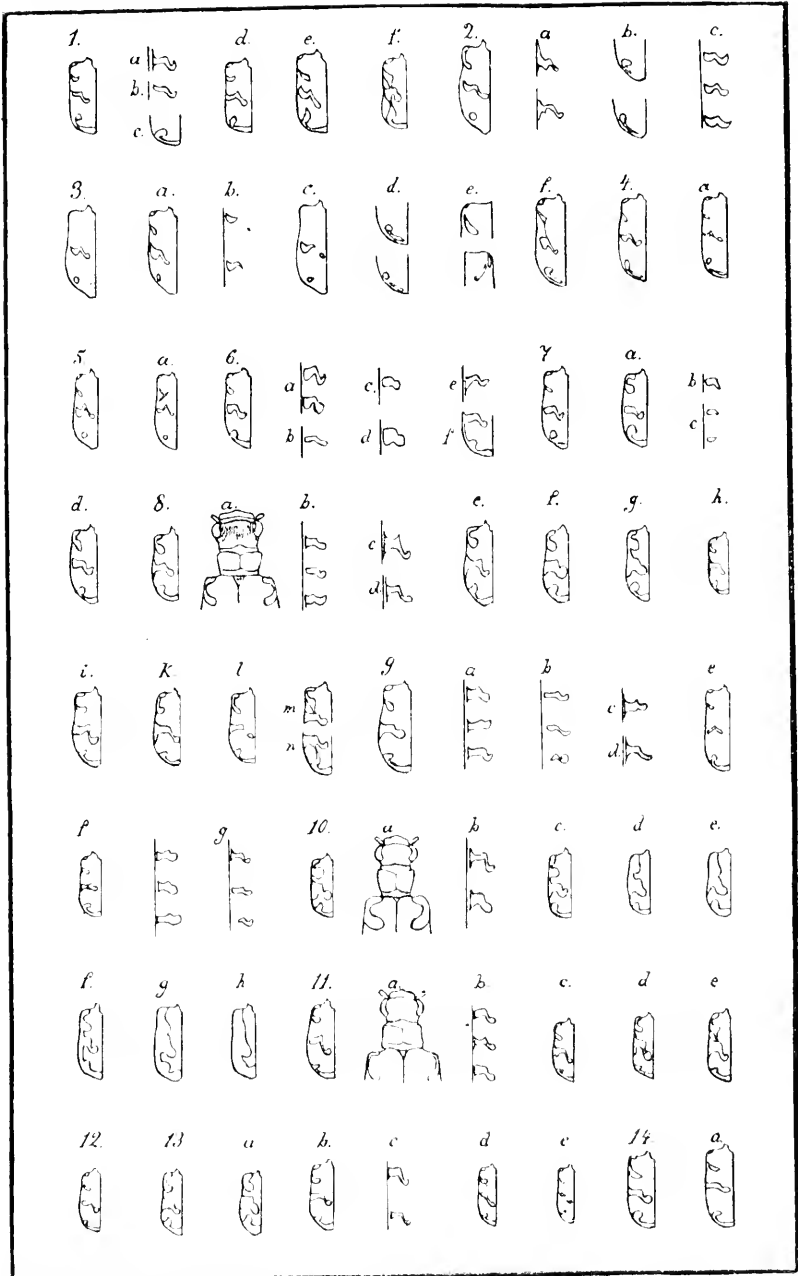 1. a d. e. f. 2. a b. c.
b.
c.
3. a. b. c. d. e. f. 4. a
5 a. 6. a c. e 7 a. b
b d f c
d. 8. a. b. c e. f. g. h.
d.
i. K. l m 9 a b c e
n d.
f g 10. a b c. d e.
f. g h 11. a. b. c. d e
12. 13 a b. c d e 14. a.